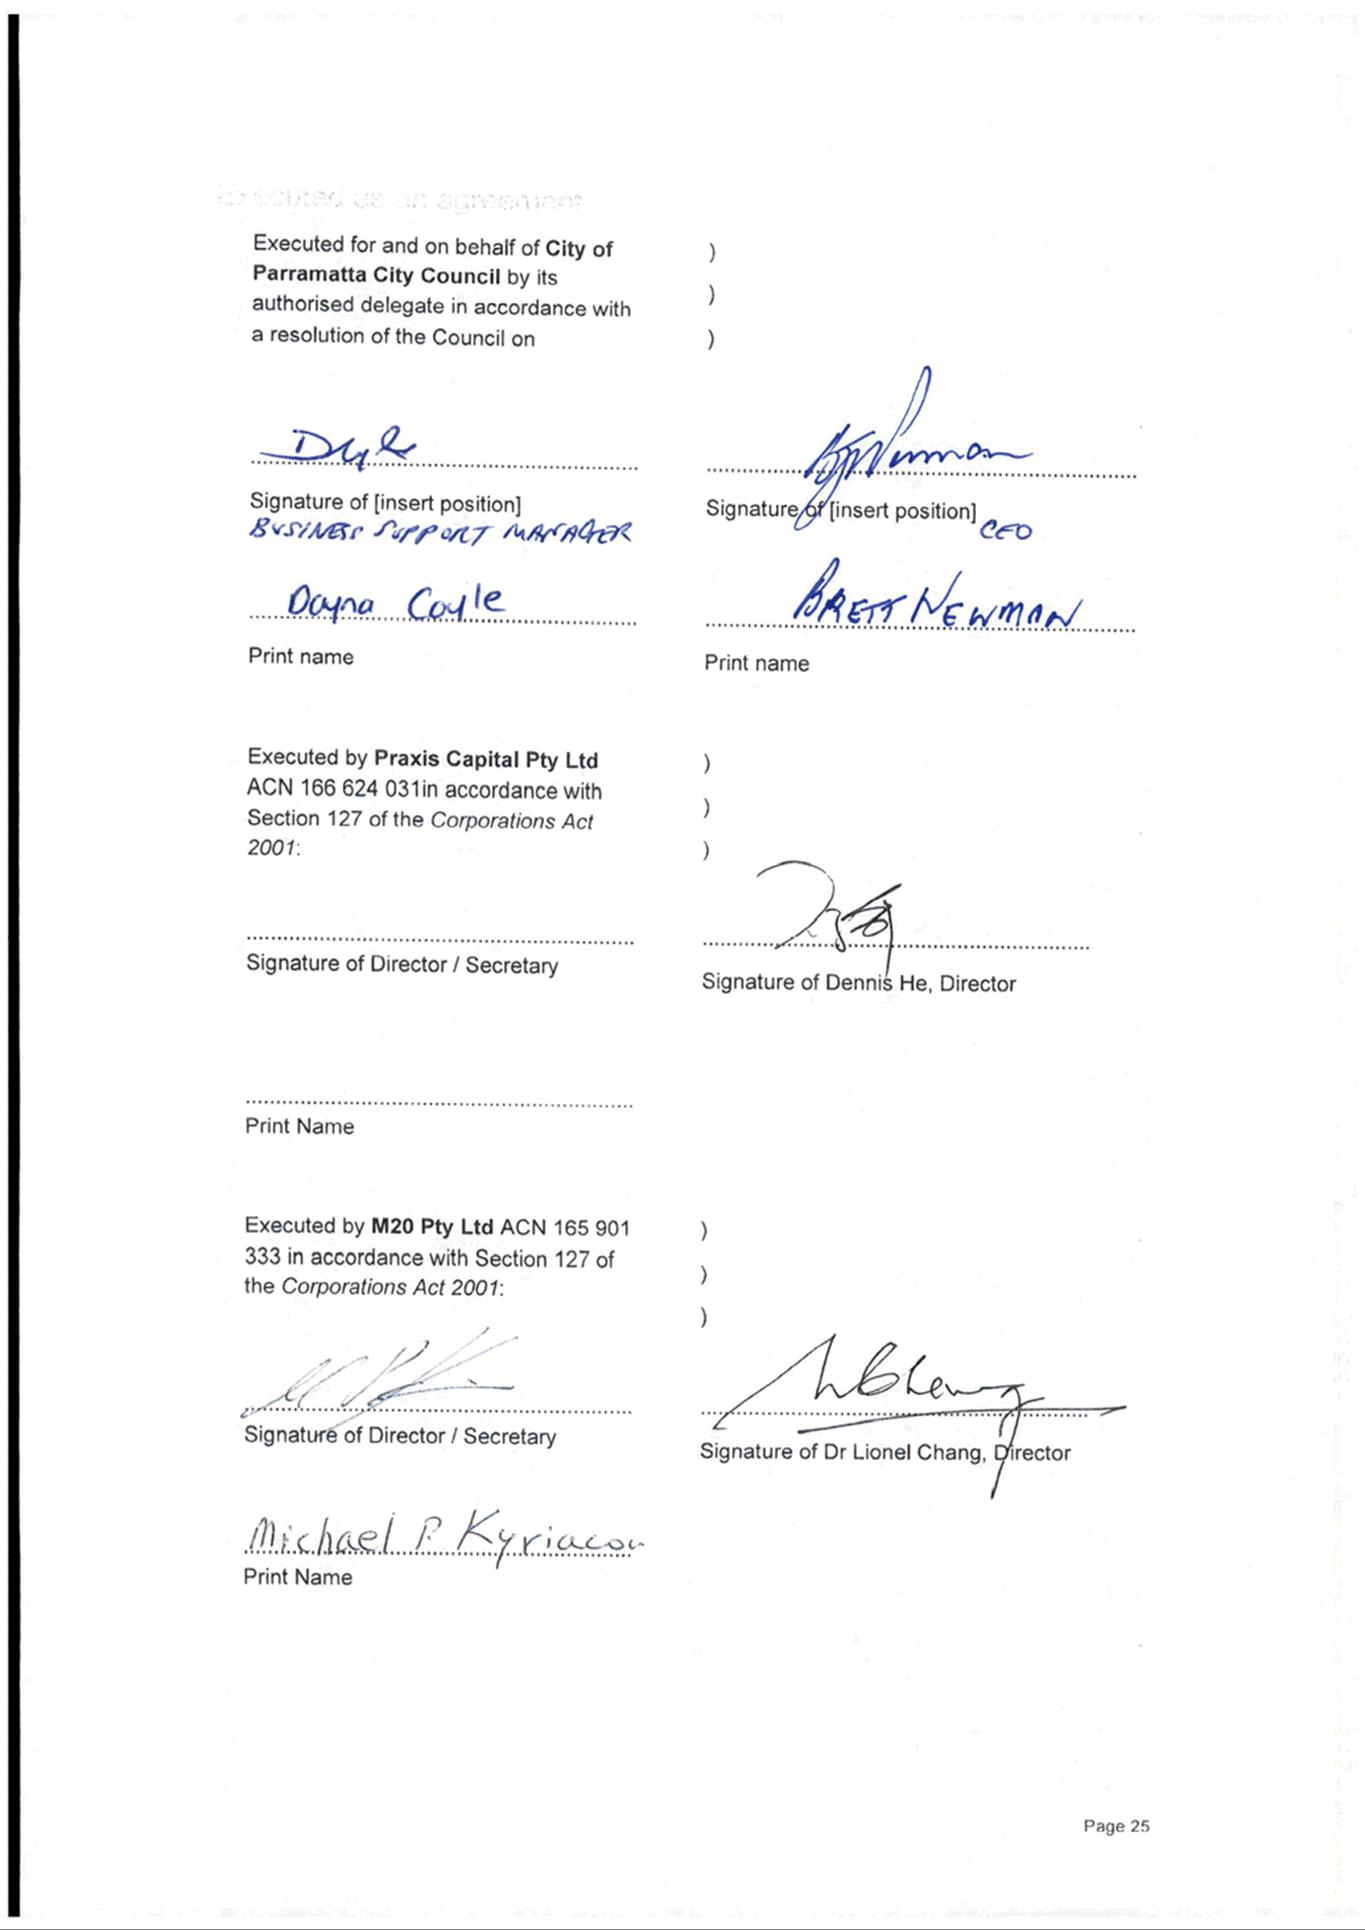 Executed as an agreement
Executed for and on behalf of City of
Parramatta City Council by its
authorised delegate in accordance with
a resolution of the Council on
)
)
)
Signature of [insert position]
BUSINESS SUPPORT MANAGER
Dayna Coyle
Print name
Signature of [insert position]
CEO
BRETT NEWMAN
Print name
Executed by Praxis Capital Pty Ltd
ACN 166 624 031in accordance with
Section 127 of the Corporations Act
2001:
)
)
)
Signature of Director / Secretary
Signature of Dennis He, Director
Print Name
Executed by M20 Pty Ltd ACN 165 901
333 in accordance with Section 127 of
the Corporations Act 2001:
)
)
)
Signature of Director / Secretary
Signature of Dr Lionel Chang, Director
Michael P. Kyriacou
Print Name
Page 25